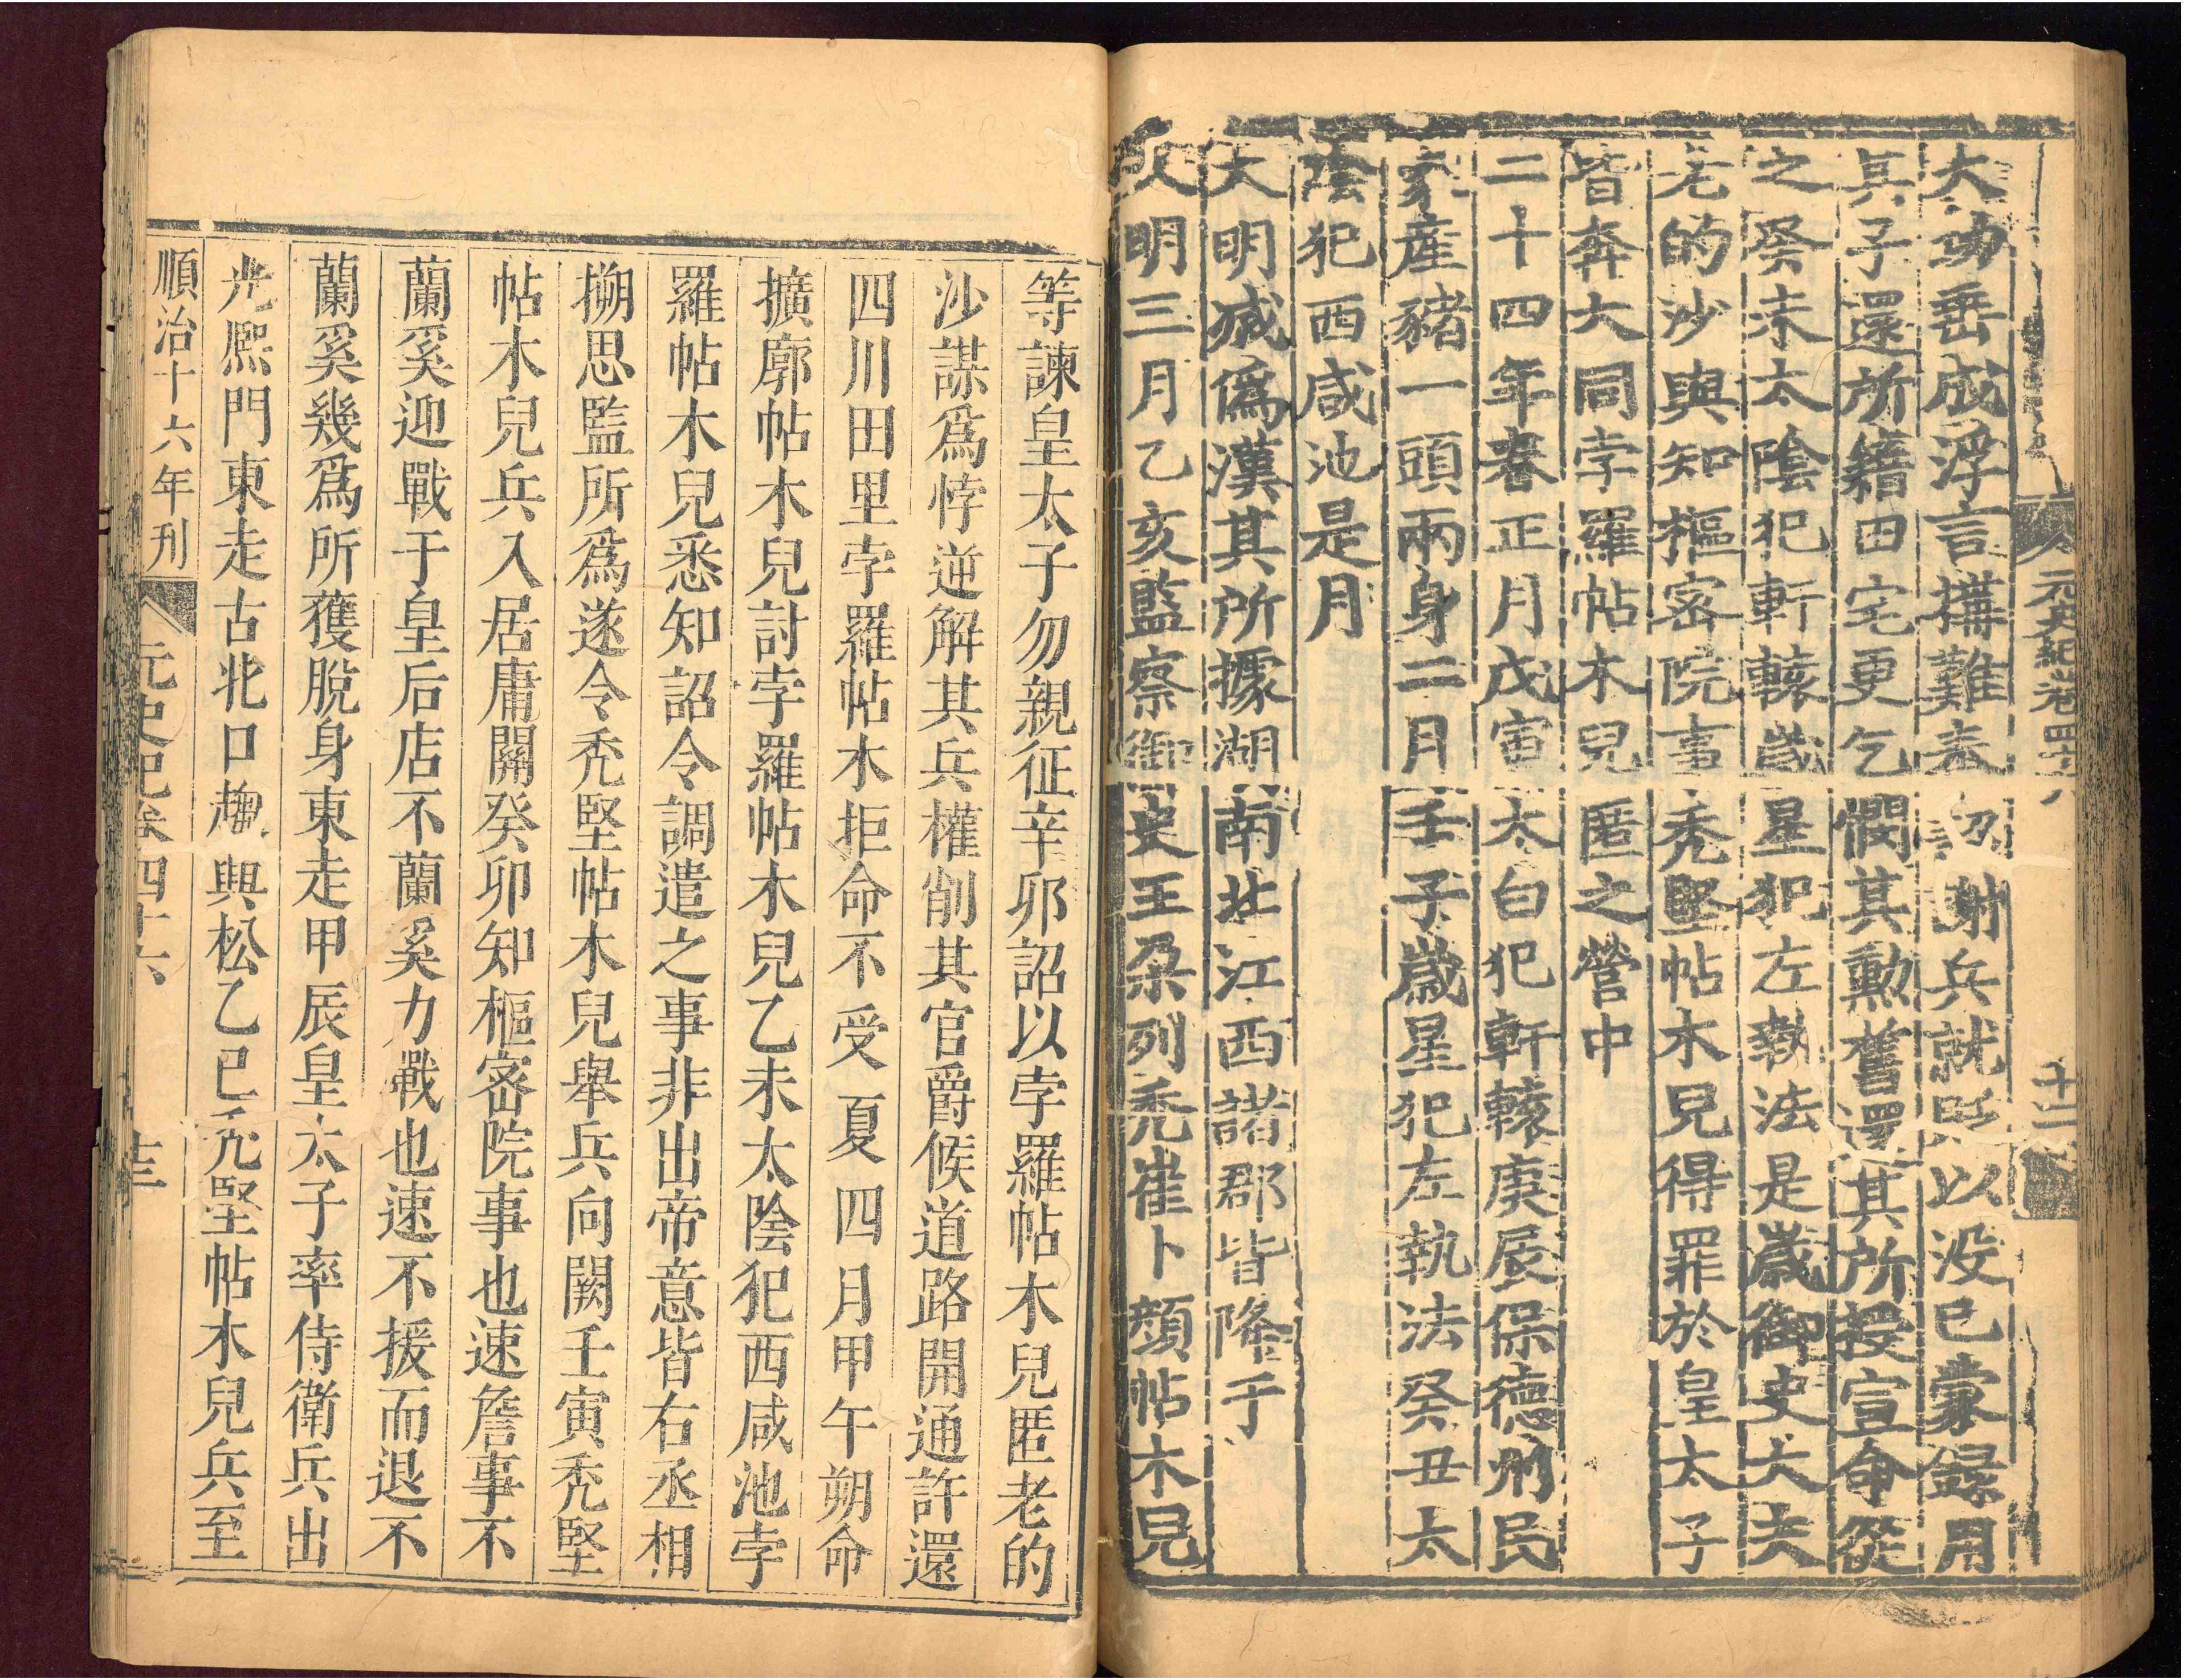 元史紀卷四十六
十二
大功垂成浮言搆難奉詔謝兵就貶以没已蒙録用
其子還所籍田宅更乞憫其勲舊還其所授宣命從
之癸未太陰犯軒轅歲星犯左執法是歲御史大夫
老的沙與知樞密院事秃堅帖木兒得罪於皇太子
皆奔大同孛羅帖木兒匿之營中
二十四年春正月戊寅太白犯軒轅庚辰保德州民
家産豬一頭兩身二月壬子歲星犯左執法癸丑太
陰犯西咸池是月
大明滅僞漢其所據湖南北江西諸郡皆降于
大明三月乙亥監察御史王朶列秃崔卜顔帖木兒
等諫皇太子勿親征辛卯詔以孛羅帖木兒匿老的
沙謀爲悖逆解其兵權削其官爵候道路開通許還
四川田里孛羅帖木拒命不受夏四月甲午朔命
擴廓帖木兒討孛羅帖木兒乙未太陰犯西咸池孛
羅帖木兒悉知詔令調遣之事非出帝意皆右丞相
搠思監所爲遂令秃堅帖木兒舉兵向闕壬寅秃堅
帖木兒兵入居庸關癸卯知樞密院事也速詹事不
蘭奚迎戰于皇后店不蘭奚力戰也速不援而退不
蘭奚幾爲所獲脫身東走甲辰皇太子率侍衛兵出
光熙門東走古北口趨興松乙巳秃堅帖木兒兵至
順治十六年刊
元史紀卷四十六
十三